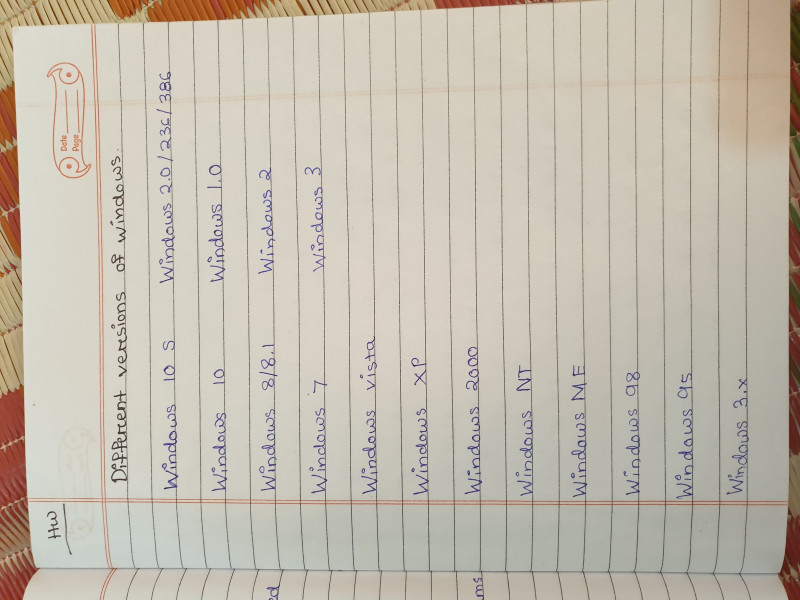 HW
Date
Page
Different versions of windows.
Windows 10 S Windows 2.0/236/386
Windows 10 Windows 1.0
Windows 8/8.1 Windows 2
Windows 7 Windows 3
Windows vista
Windows XP
Windows 2000
Windows NT
Windows ME
Windows 98
Windows 95
Windows 3.x
ed
ms